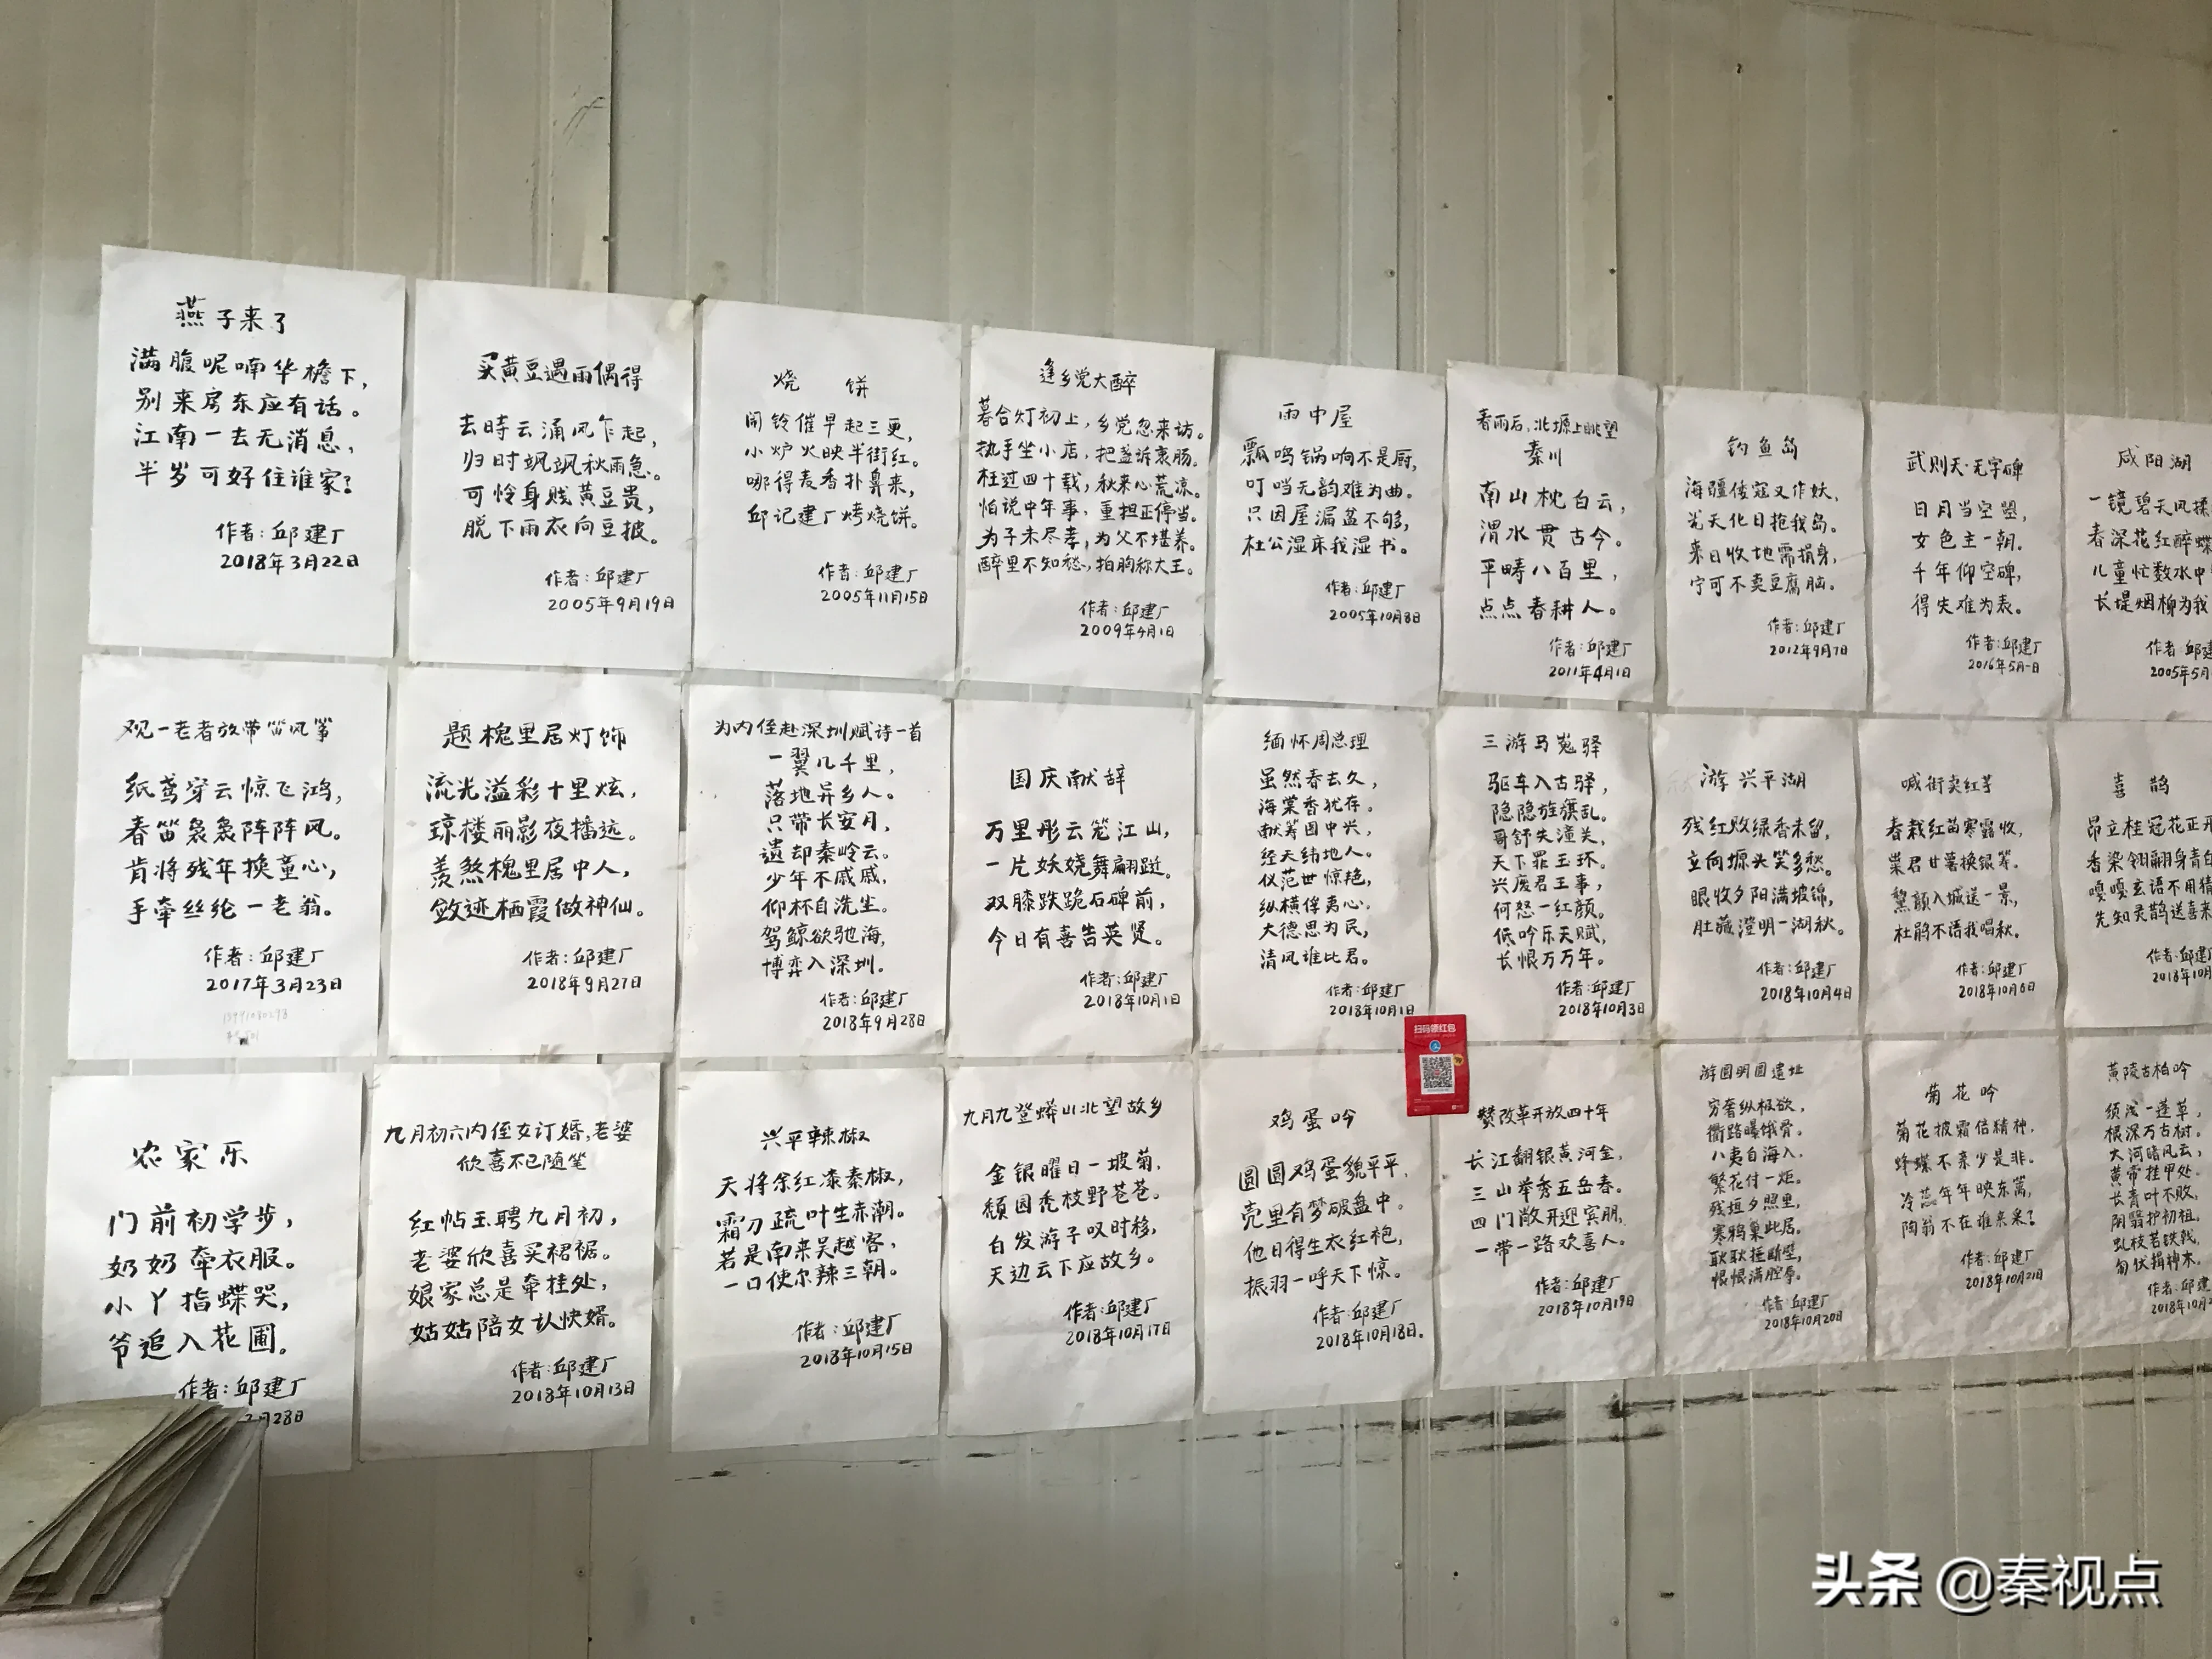 燕子来了
满腹呢喃华檐下，
别来房东应有话。
江南一去无消息，
半岁可好住谁家？
作者：邱建厂
2018年3月22日
买黄豆遇雨偶得
去時云涌风乍起，
归时飒飒秋雨急。
可怜身贱黄豆贵，
脱下雨衣向豆披。
作者：邱建厂
2005年9月19日
烧 饼
闹铃催早起三更，
小炉火映半街红。
哪得麦香扑鼻来，
邱记建厂烤烧饼。
作者：邱建厂
2005年11月15日
逢乡党大醉
暮合灯初上，乡党忽来访。
执手坐小店，把盏诉衷肠。
枉过四十载，秋来心荒凉。
怕说中年事，重担正停当。
为子未尽孝，为父不堪养。
醉里不知愁，拍胸称大王。
作者：邱建厂
2009年4月1日
雨中屋
瓢鸣锅响不是厨，
叮当无韵难为曲。
只因屋漏盆不够，
杜公湿床我湿书。
作者：邱建厂
2005年10月8日
春雨后，北塬上眺望
秦川
南山枕白云，
渭水贯古今。
平畴八百里，
点点春耕人。
作者：邱建厂
2011年4月1日
钓鱼岛
海疆倭寇又作妖，
光天化日抢我岛。
来日收地需捐身，
宁可不卖豆腐脑。
作者：邱建厂
2012年9月7日
武则天·无字碑
日月当空曌，
女色主一朝。
千年仰空碑，
得失难为表。
作者：邱建厂
2016年5月一日
咸阳湖
一镜碧天风揉
春深花红醉蝶
儿童忙数水中
长堤烟柳为我
作者：邱建
2005年5月
观一老者放带笛风筝
纸鸢穿云惊飞鸿，
春笛袅袅阵阵风。
肯将残年换童心，
手牵丝纶一老翁。
作者：邱建厂
2017年3月23日
题槐里居灯饰
流光溢彩十里炫，
琼楼丽影夜播远。
羡煞槐里居中人，
敛迹栖霞做神仙。
作者：邱建厂
2018年9月27日
为内侄赴深圳赋诗一首
一翼几千里，
落地异乡人。
只带长安月，
遗却秦岭云。
少年不戚戚，
仰杯自洗尘。
驾鲸欲驰海，
博弈入深圳。
作者：邱建厂
2018年9月28日
国庆献辞
万里彤云笼江山，
一片妖娆舞翩跹。
双膝跌跪石碑前，
今日有喜告英贤。
作者：邱建厂
2018年10月1日
缅怀周总理
虽然春去久，
海棠香犹存。
献筹国中兴，
经天纬地人。
仪范世惊艳，
纵横俘夷心。
大德思为民，
清风谁比君。
作者：邱建厂
2018年10月1日
三游马嵬驿
驱车入古驿，
隐隐旌旗乱。
哥舒失潼关，
天下罪玉环。
兴废君王事，
何怒一红颜。
低吟乐天赋，
长恨万万年。
作者：邱建厂
2018年10月3日
游兴平湖
残红败绿香未留，
立向塬头笑多愁。
眼收夕阳满坡锦，
肚藏澄明一湖秋。
作者：邱建厂
2018年10月4日
喊街卖红芋
春栽红苗寒露收，
粜君甘薯换银筹。
黧颜入城送一景，
杜鹃不语我唱秋。
作者：邱建厂
2018年10月6日
喜 鹊
昂立桂冠花正开
香染翎翮身青白
嘎嘎玄语不用猜
先知灵鹊送喜来
作者：邱建厂
2018年10月
农家乐
门前初学步，
奶奶牵衣服。
小丫指蝶哭，
爷追入花圃。
作者：邱建厂
月28日
九月初六内侄女订婚，老婆
欣喜不已随笔
红帖玉聘九月初，
老婆欣喜买裙裾。
娘家总是牵挂处，
姑姑陪女认快婿。
作者：邱建厂
2018年10月13日
兴平辣椒
天将余红漆秦椒，
霜刀疏叶生赤潮。
若是南来吴越客，
一口使尔辣三朝。
作者：邱建厂
2018年10月15日
九月九登蟒山北望故乡
金银曜日一坡菊，
颓园秃枝野苍苍。
白发游子叹时移，
天边云下应故乡。
作者：邱建厂
2018年10月17日
鸡蛋吟
圆圆鸡蛋貌平平，
壳里有梦破盘中。
他日得生衣红袍，
振羽一呼天下惊。
作者：邱建厂
2018年10月18日。
扫码领红包
赞改革开放四十年
长江翻银黄河金，
三山举秀五岳春。
四门敞开迎宾朋，
一带一路欢喜人。
作者：邱建厂
2018年10月19日
游圆明圆遗址
穷奢纵极欲，
衢路曝饿骨。
八夷自海入，
繁花付一炬。
残垣夕照里，
寒鸦巢此居。
耿耿捶断壁，
恨恨满腔辱。
作者：邱建厂
2018年10月20日
菊花吟
菊花披霜倍精神，
蜂蝶不亲少是非。
冷蕊年年映东篱，
陶翁不在谁来采？
作者：邱建厂
2018年10月21日
黄陵古柏吟
须浅一蓬草，
根深万古树。
大河暗风云，
黄帝挂甲处。
长青叶不败，
阴翳护初祖。
虬枝若铁戟，
匍伏揖神木。
作者：邱建
2018年10月2
头条 @秦视点